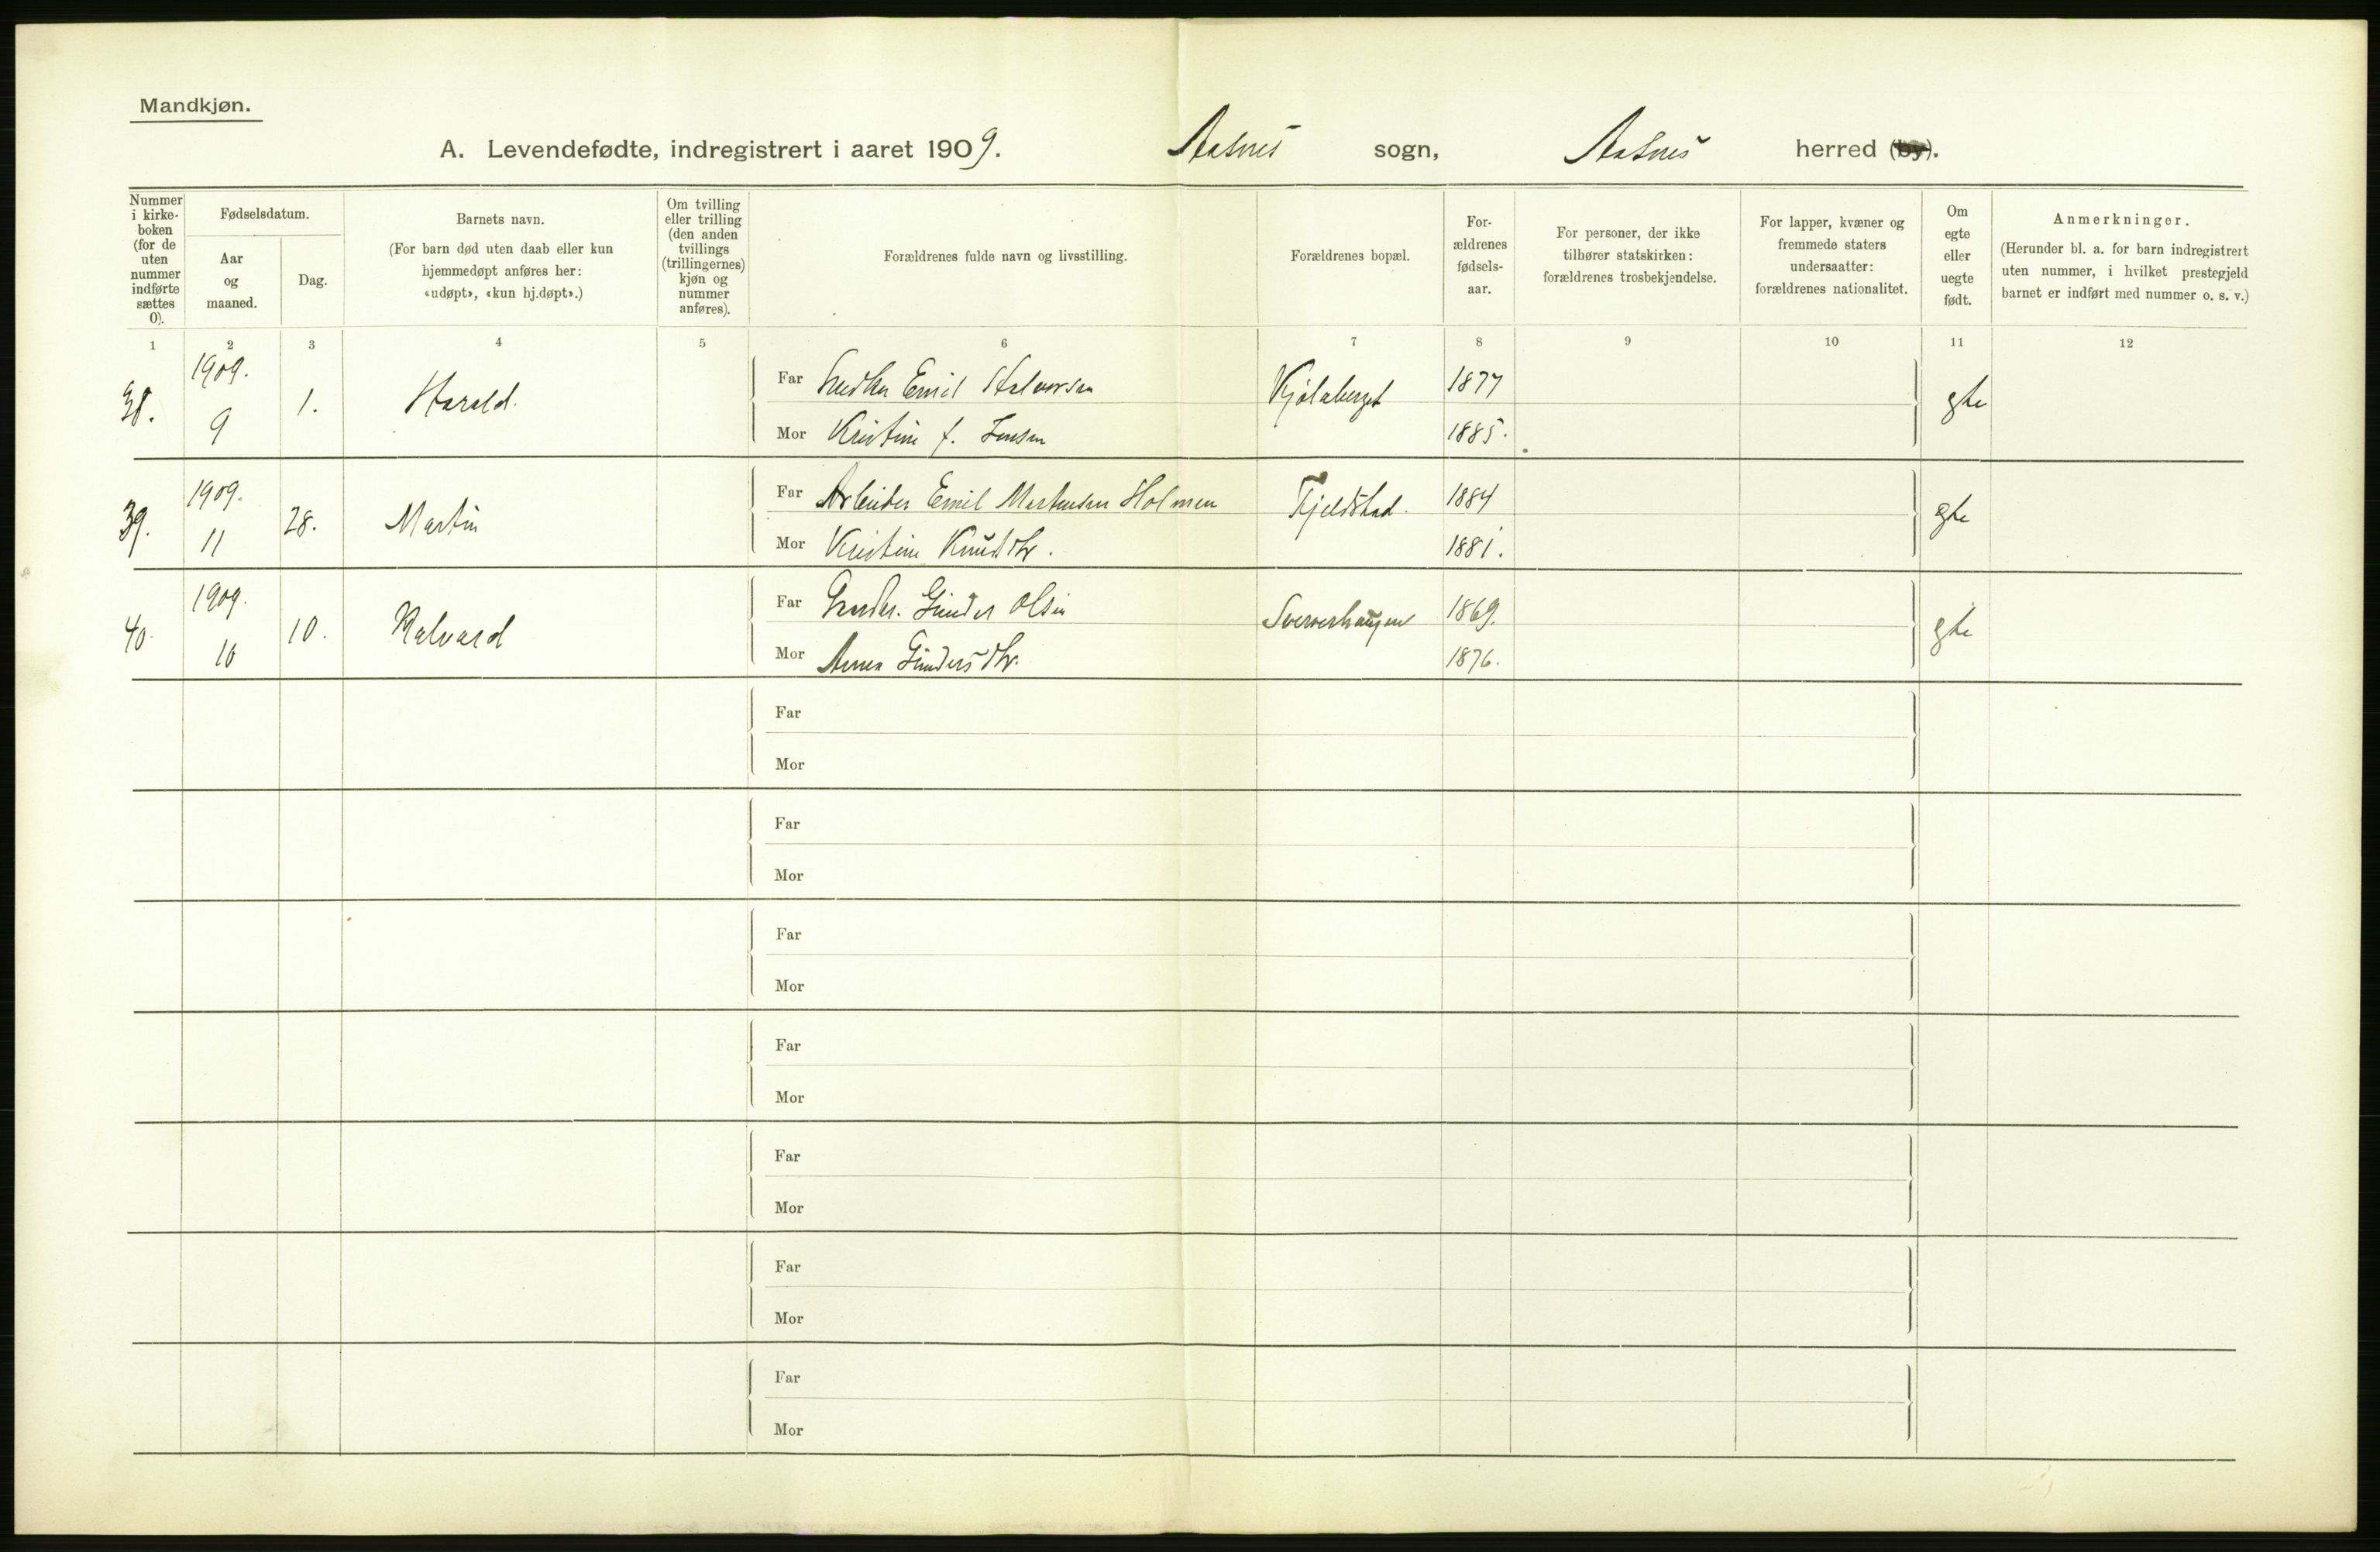 Mandkjøn.
A. Levendefødte, indregistrert i aaret 1909. Aasnes sogn, Aasnes herred (by).
Nummer i kirke-boken (for de uten nummer indførte sættes 0).
Fødselsdatum.
Aar og maaned.
Dag.
Barnets navn.
(For barn død uten daab eller kun hjemmedøpt anføres her: «udøpt», «kun hj.døpt».)
Om tvilling eller trilling (den anden tvillings (trillingernes) kjøn og nummer anføres).
Forældrenes fulde navn og livsstilling.
Forældrenes bopæl.
For-ældrenes fødsels-aar.
For personer, der ikke tilhører statskirken: forældrenes trosbekjendelse.
For lapper, kvæner og fremmede staters undersaatter: forældrenes nationalitet.
Om egte eller uegte født.
Anmerkninger.
(Herunder bl. a. for barn indregistrert uten nummer, i hvilket prestegjeld barnet er indført med nummer o. s. v.)
1 2 3 4 5 6 7 8 9 10 11 12
38. 1909. 9 1. Harald. Far Emil Halvorsen Kjølaberget 1877 gte
Mor Kristine f. Jensen 1885.
39. 1909. 11 28. Martin Far Arbeider Emil Martinsen Holmen Fjeldstad. 1884 gte
Mor Kristine Knudsdtr. 1881.
40. 1909. 10 10. Halvard Far Gunder Olsen 1869. gte
Mor Anna Gundersdtr. 1876.
Far
Mor
Far
Mor
Far
Mor
Far
Mor
Far
Mor
Far
Mor
Far
Mor